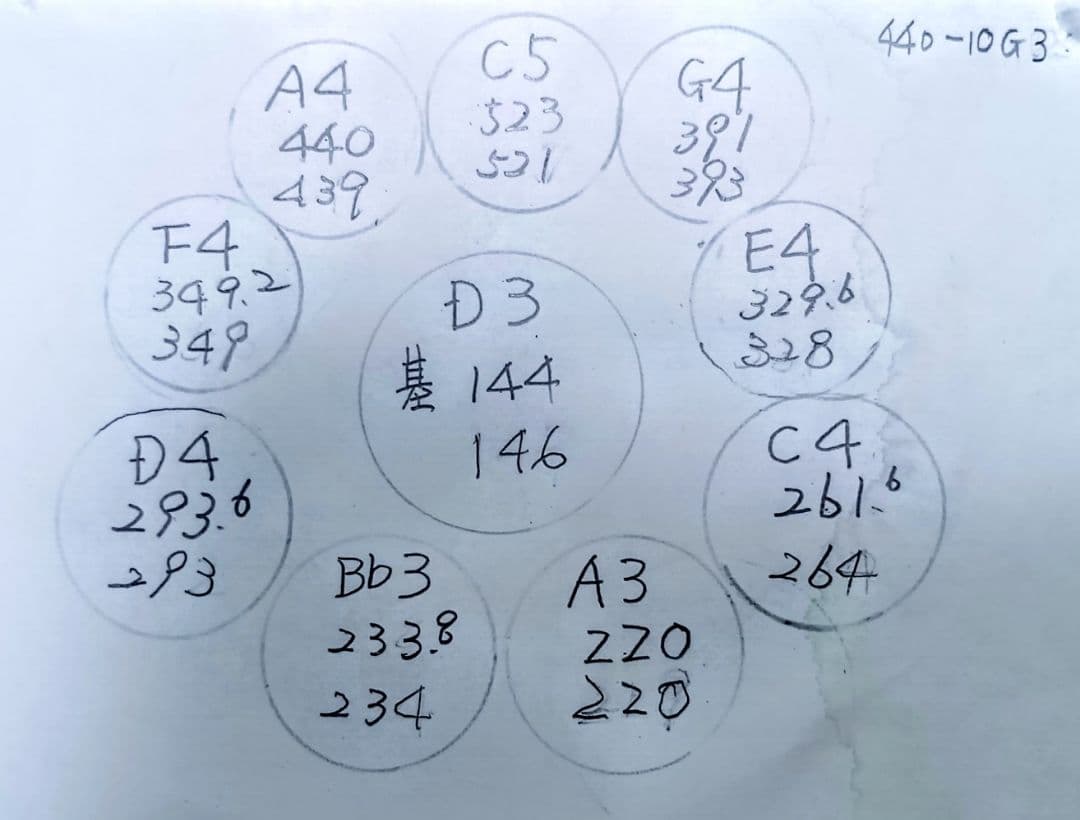 440-10G3
A4
440
439.
C5
523
521
G4
391
393
F4
349.2
349
D3
基 144
146
E4
329.6
328
D4
293.6
293
C4
261.6
264
Bb3
233.8
234
A3
220
220